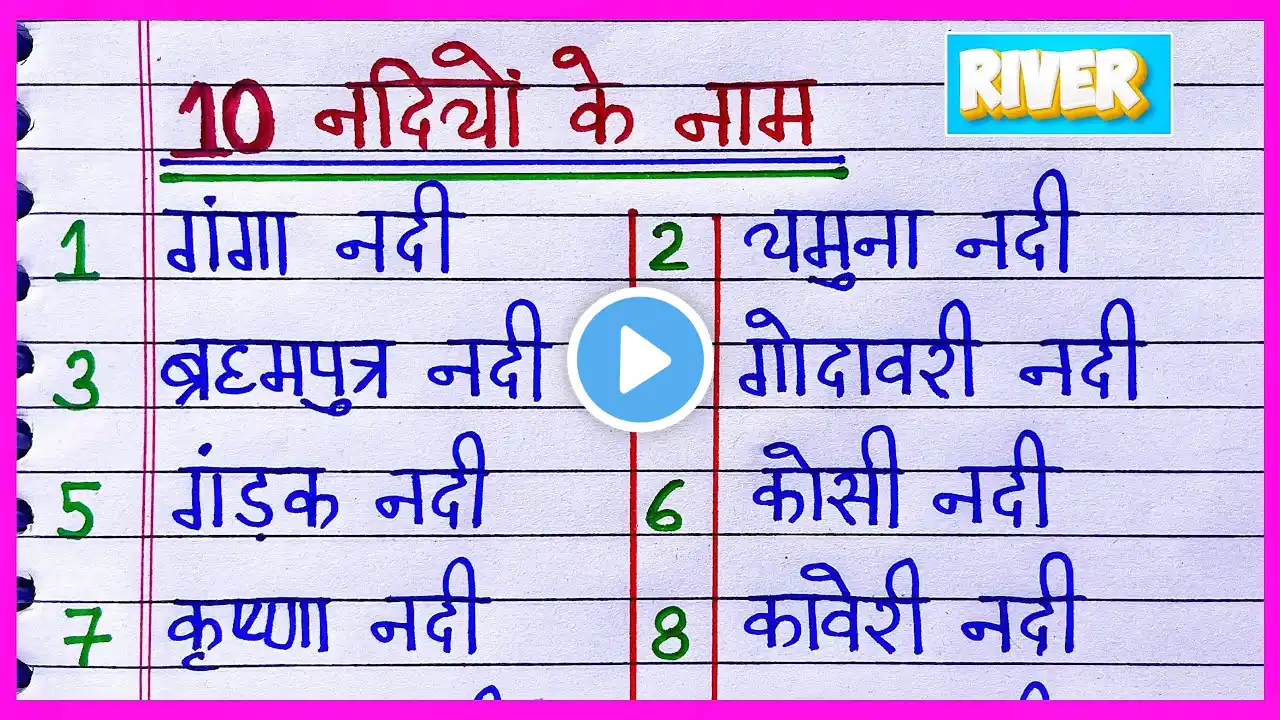 10 नदियों के नाम
RIVER
1 गंगा नदी 2 यमुना नदी
3 ब्रह्मपुत्र नदी गोदावरी नदी
5 गंड़क नदी 6 कोसी नदी
7 कृष्णा नदी 8 कावेरी नदी